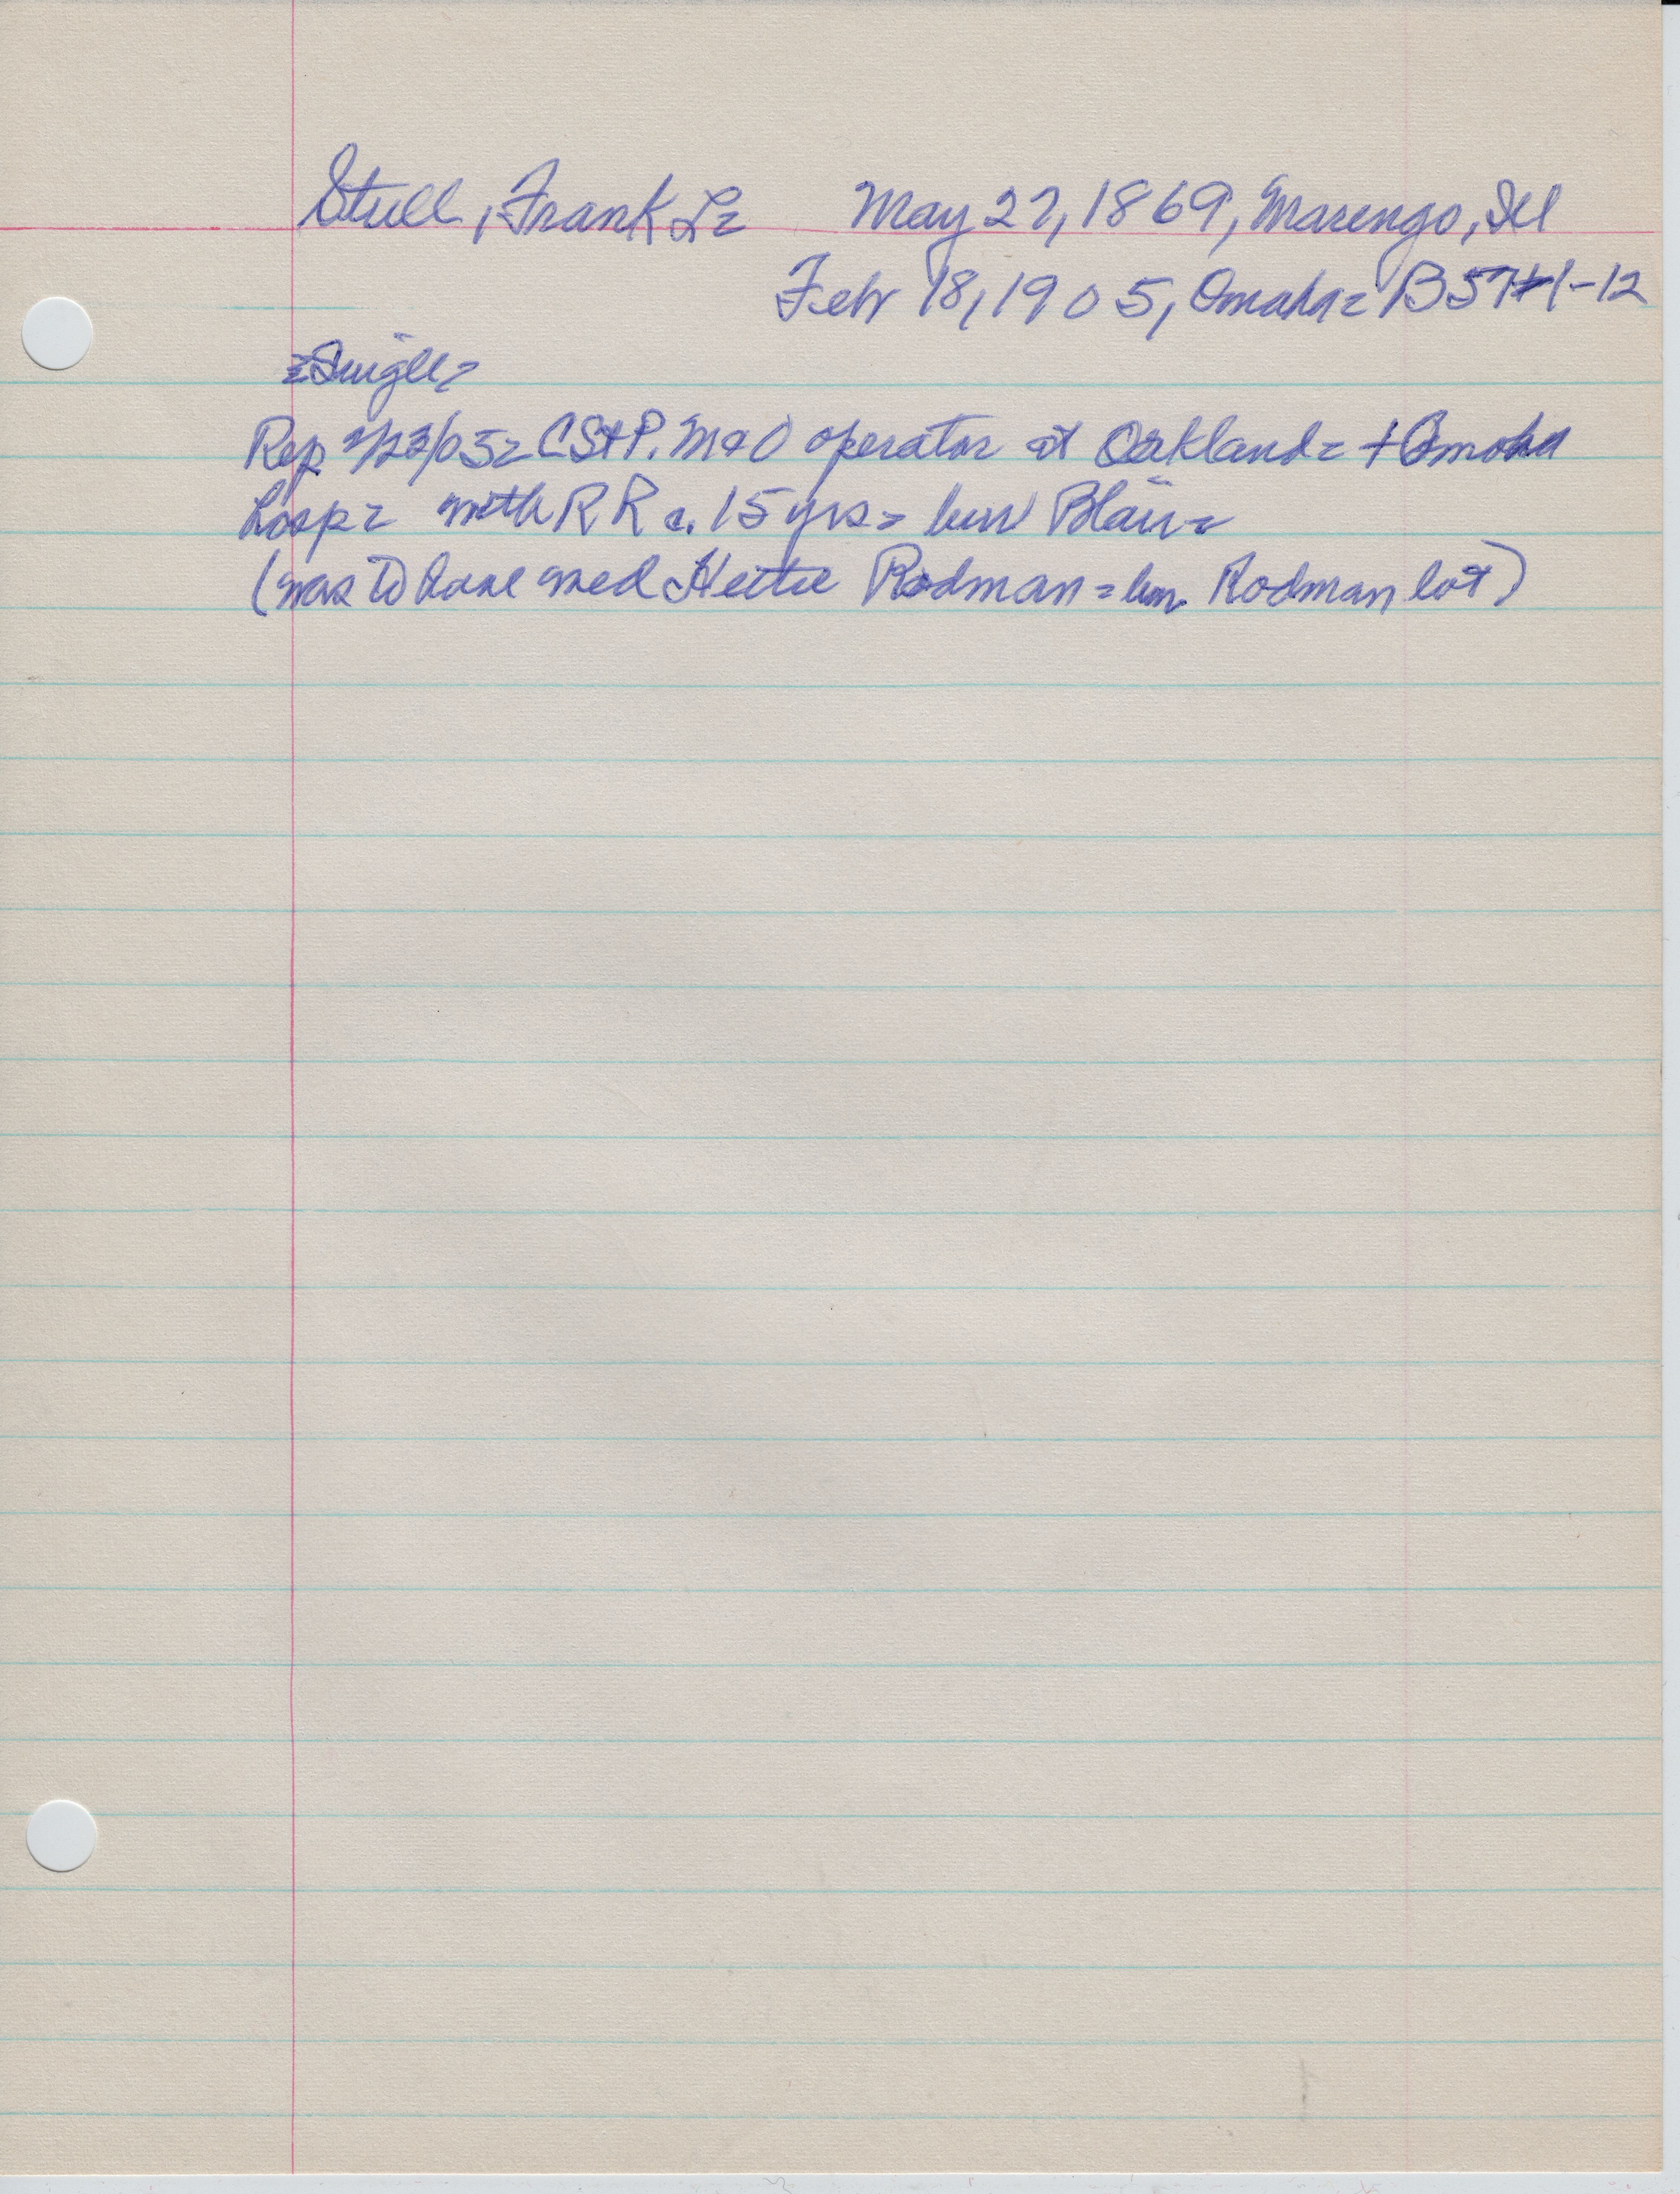 Stull, Frank L= May 27, 1869, Marengo, Ill
Febr 18, 1905, Omaha= B57#1-12
=Single=
Rep 2/23/05= CStP. M&O operator at Oakland= + Omaha
hosp= with RR c. 15 yrs= bur Blair=
(was to have med Hettie Rodman= bur. Rodman lot)